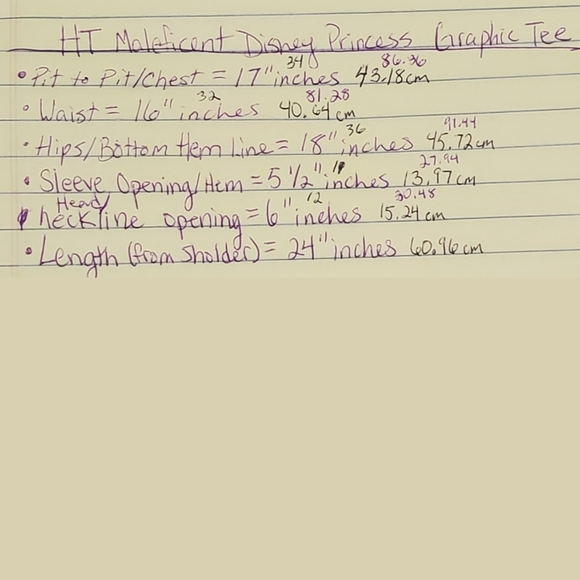 HT Maleficent Disney Princess Graphic Tee
34 86.36
• Pit to Pit/Chest = 17" inches 43.18cm
32 81.28
• Waist = 16" inches 40.64 cm
36 91.44
• Hips/Bottom Hem Line = 18" inches 45.72cm
11 27.94
• Sleeve Opening/Hem = 5 1/2" inches 13.97cm
Head/ 12 30.48
neckline opening = 6" inches 15.24 cm
• Length (from Sholder) = 24" inches 60.96 cm